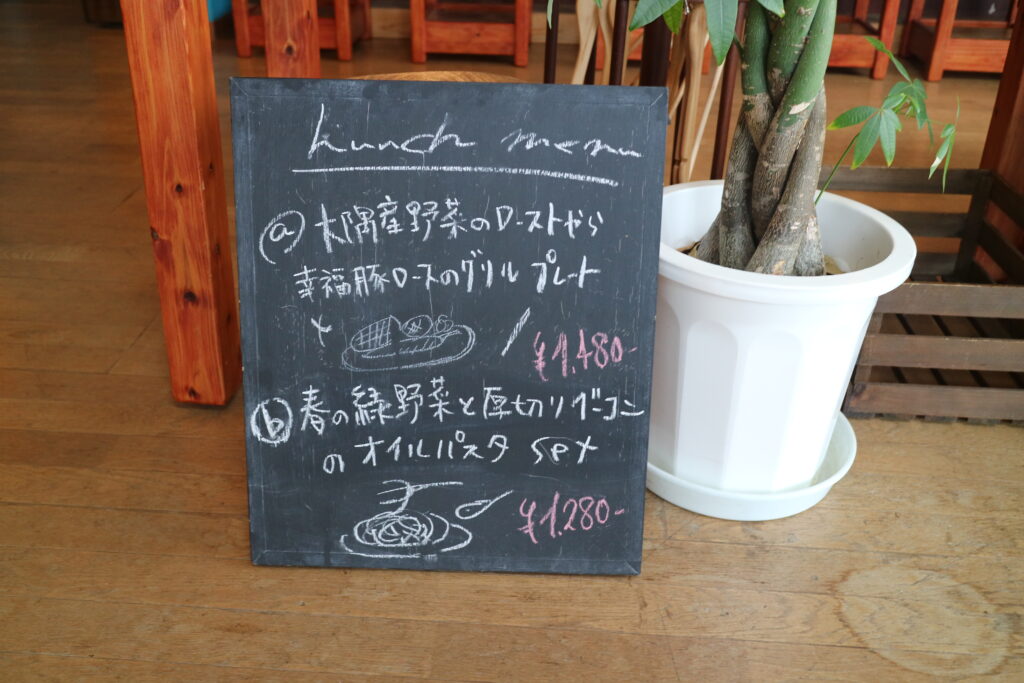 Lunch menu
ⓐ 大隅産野菜のローストやら
幸福豚ロースのグリル プレート
¥1,480-
ⓑ 春の緑野菜と厚切りベーコン
のオイルパスタ set
¥1,280-